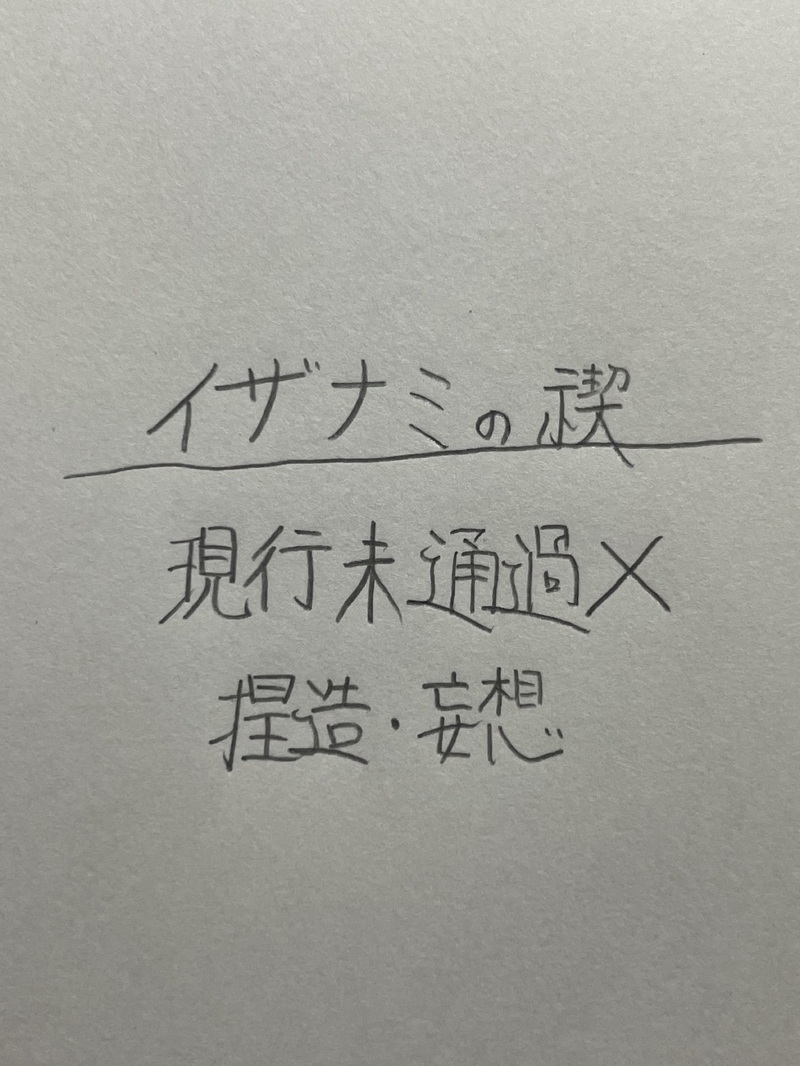 イザナミの禊
現行未通過×
捏造・妄想